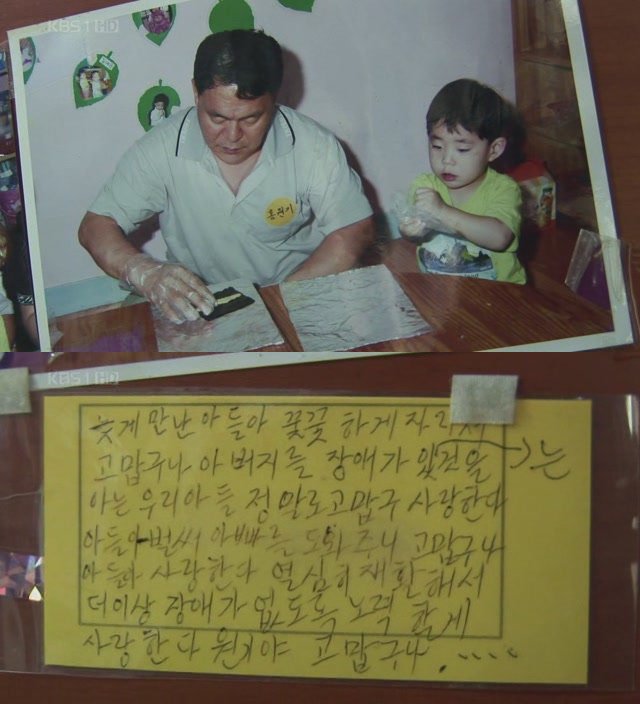 KBS1 HD
홍원기
KBS1 HD
늦게 만난 아들아 꽃꽃 하게 자라서
고맙구나 아버지를 장애가 있것을 → 는
아는 우리아들 정말로고맙구 사랑한다
아들아 벌써 아빠를 도와 주니 고맙구나
아들아 사랑한다 열심히 재활해서
더이상 장애가 없도록 노력 할게
사랑한다 원기야 고맙구나.....